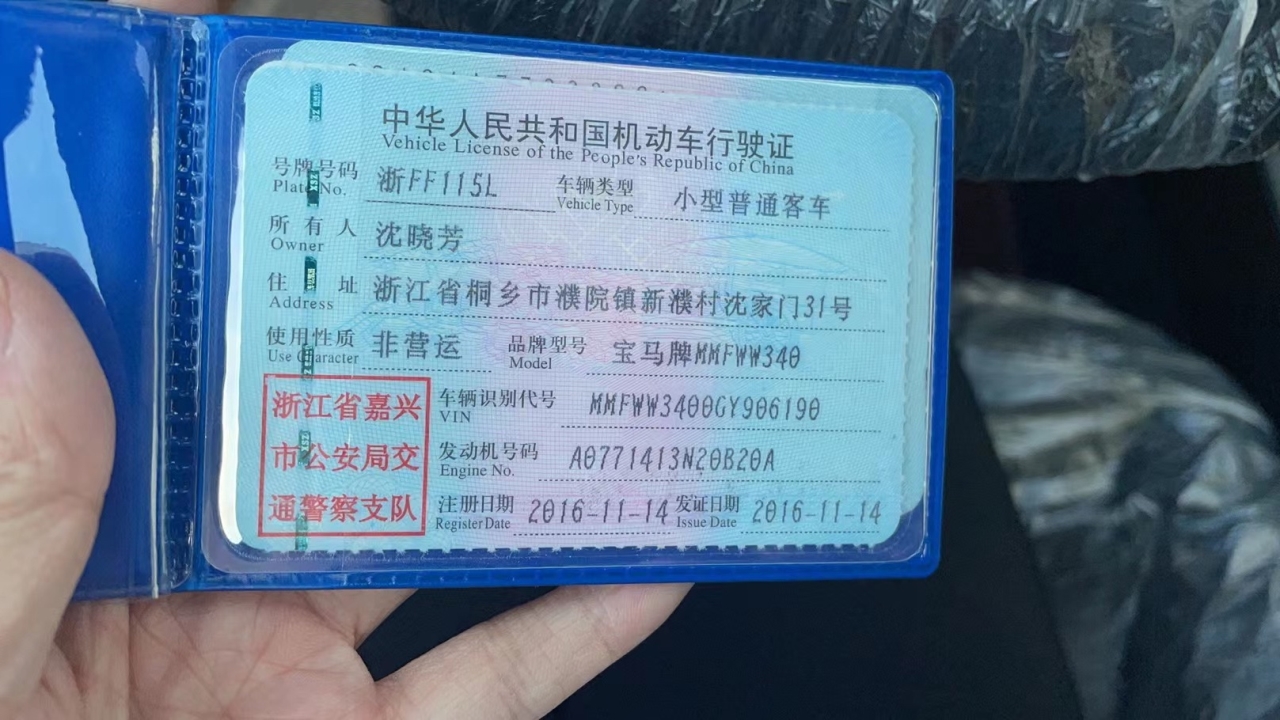 中华人民共和国机动车行驶证
Vehicle License of the People's Republic of China
号牌号码 浙FF115L 车辆类型 小型普通客车
Plate No. Vehicle Type
所有人 沈晓芳
Owner
住址 浙江省桐乡市濮院镇新濮村沈家门31号
Address
使用性质 非营运 品牌型号 宝马牌MMFWW340
Use Character Model
浙江省嘉兴
市公安局交
通警察支队
车辆识别代号 MMFWW3400GY906190
VIN
发动机号码 A0771413N20B20A
Engine No.
注册日期 2016-11-14 发证日期 2016-11-14
Register Date Issue Date